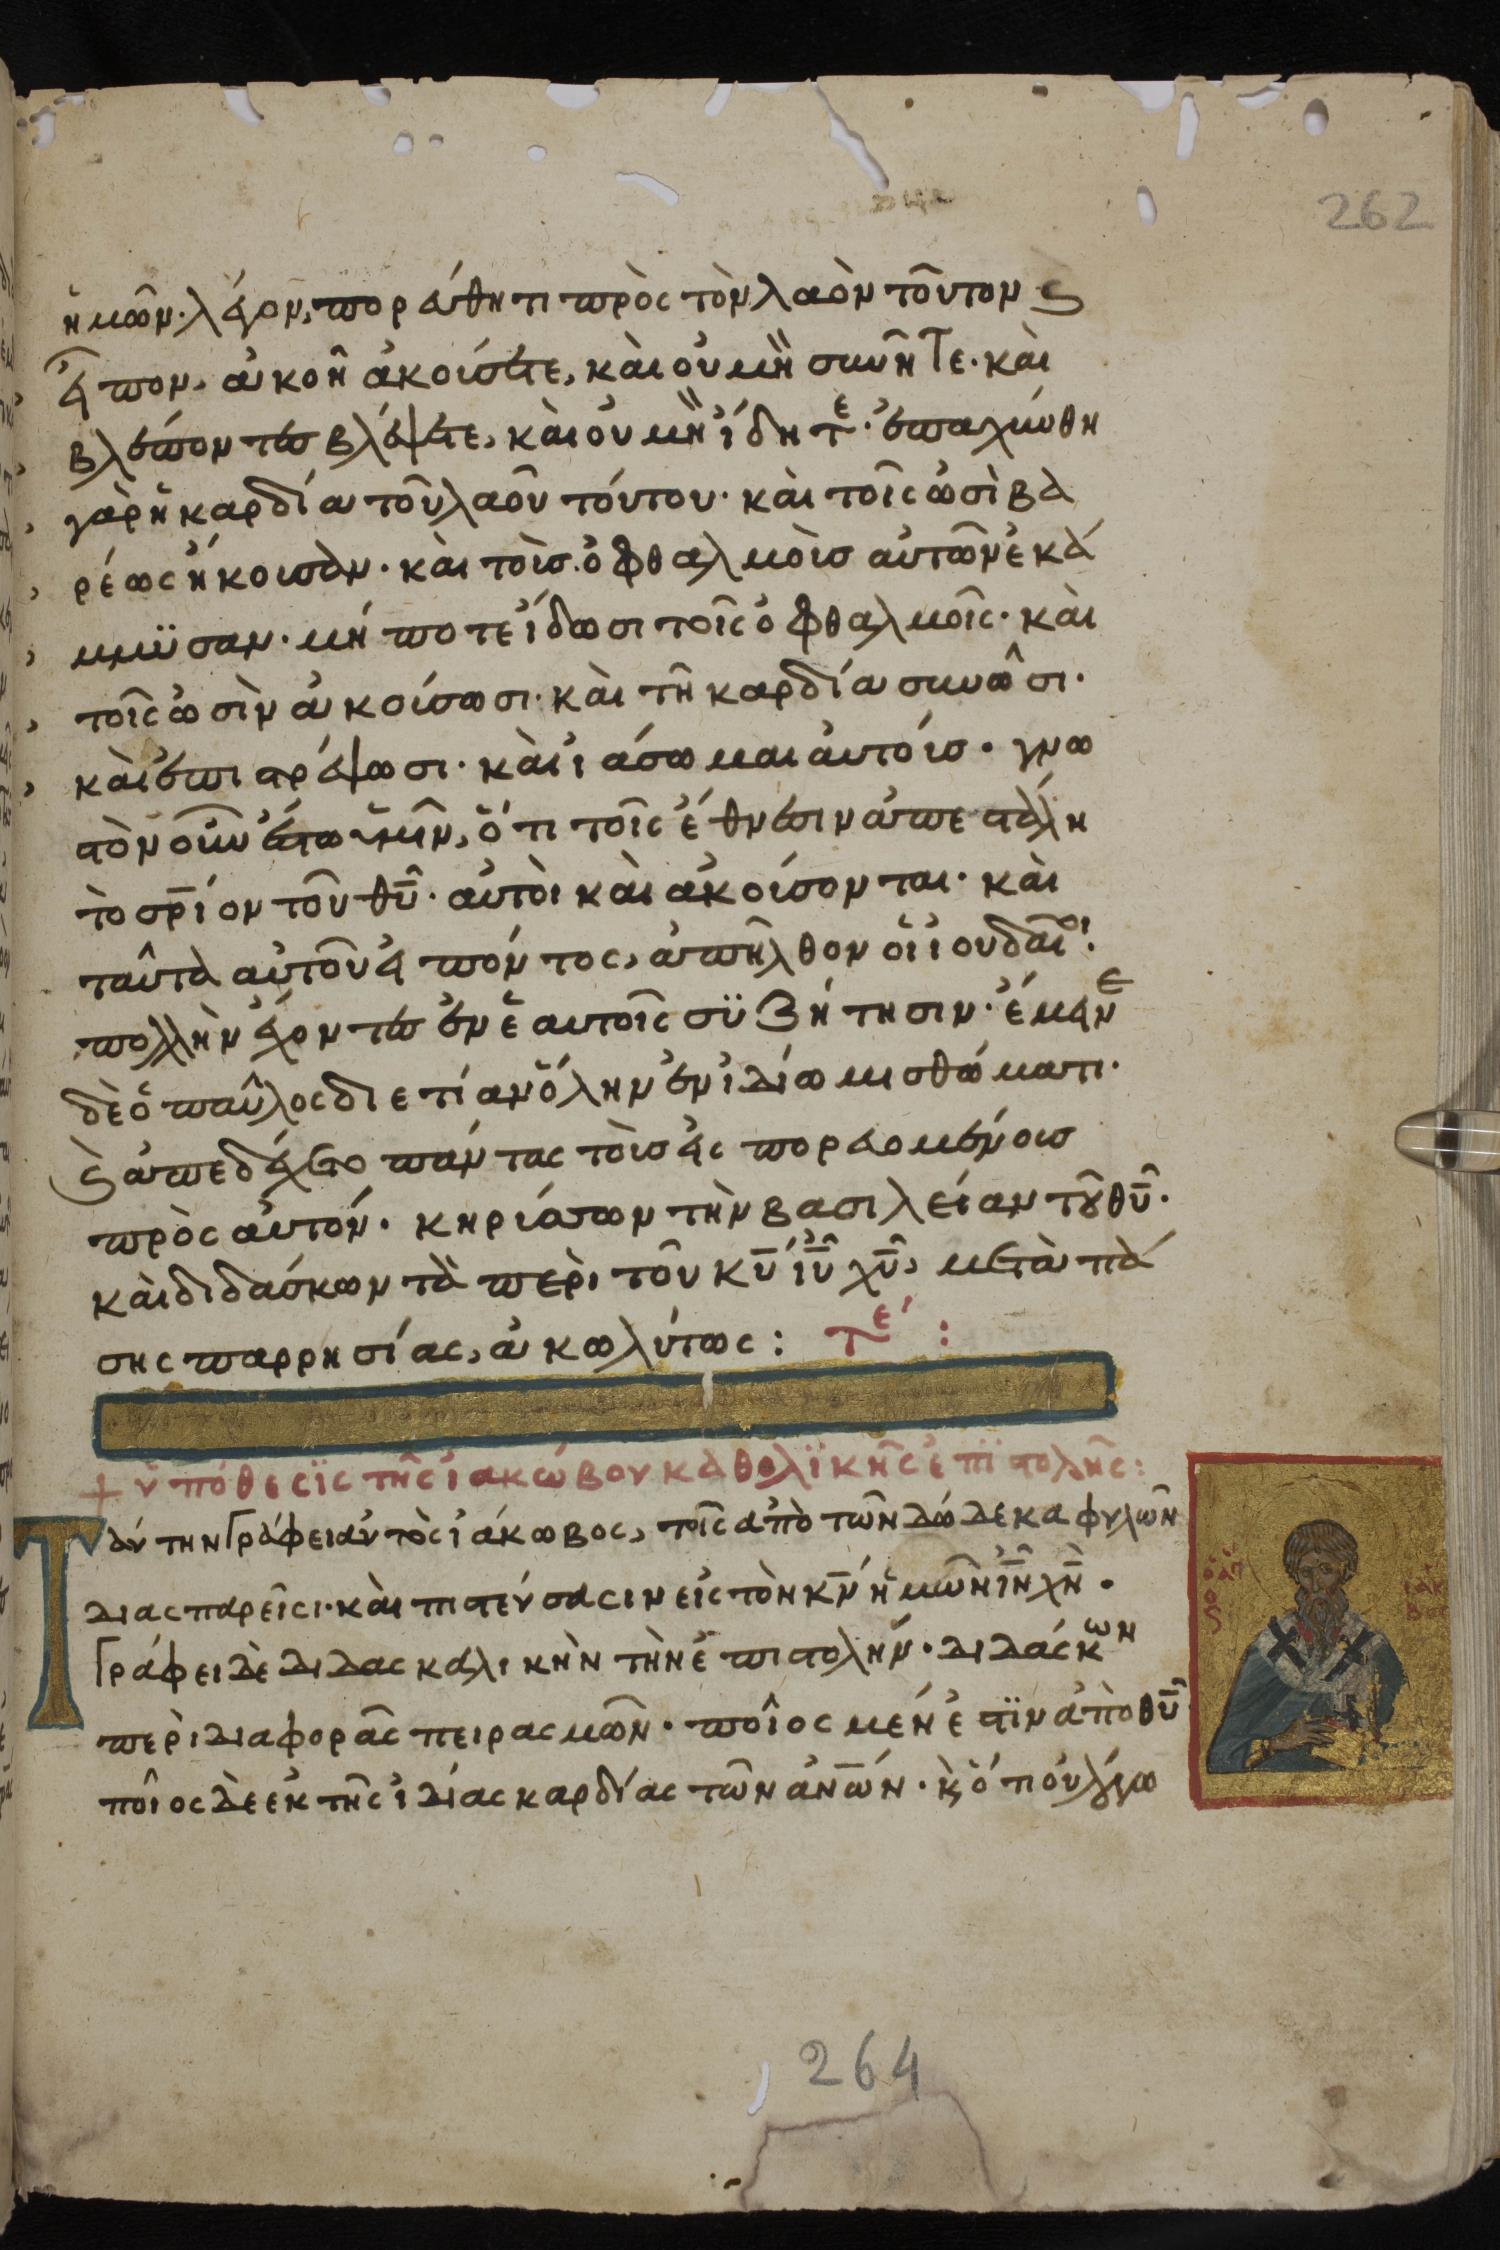 262
ἡμῶν· λέγον, πορεύθητι πρὸς τὸν λαὸν τοῦτον ϗ
εἶπον, ἀκοῆ ἀκούσετε, καὶ οὐ μὴ συνῆτε· καὶ
βλέποντες βλέψετε, καὶ οὐ μὴ ἴδητε· ἐπαχύνθη
γὰρ ἡ καρδία τοῦ λαοῦ τούτου· καὶ τοῖς ὠσὶ βα
ρέως ἤκουσαν· καὶ τοὺσ ὀφθαλμοὺσ αὐτῶν ἐκά
μμϋσαν· μή ποτε ἴδωσι τοῖς ὀφθαλμοῖς· καὶ
τοῖς ὠσὶν ἀκούσωσι· καὶ τῆ καρδία συνῶσι·
καὶ ἐπιστρέψωσι· καὶ ἰάσωμαι αὐτούσ· γνω
στὸν οὖν ἔστω ὑμῖν, ὅτι τοῖς ἔθνεσιν ἀπεστάλη
τὸ σρ̅ίον τοῦ θυ̅· αὐτοὶ καὶ ἀκούσονται· καὶ
ταῦτα αὐτοῦ εἰπόντος, ἀπῆλθον οἱ ἰουδαῖοι·
πολλὴν ἔχοντες ἐν ἑαυτοῖς σϋζήτησιν· ἔμεινε
δὲ ὁ παῦλος διετίαν ὅλην ἐν ἰδίω μισθώματι·
ϗ ἀπεδέχετο πάντας τοὺσ εἰσπορευομένουσ
πρὸς αὐτόν· κηρύσσων τὴν βασιλείαν τοῦ θυ̅·
καὶ διδάσκων τὰ περὶ τοῦ κυ̅ ἰυ̅ χυ̅, μετὰ πά
σης παρρησίας, ἀκωλύτως: τε´:
+ ὑπόθεσϊς τῆς ἰακώβου καθολϊκῆς ἐπϊστολῆς:
Ταύτην γράφει αὐτὸς ἰάκωβος, τοῖς ἀπὸ τῶν δώδεκα φυλῶν
διασπαρεῖσι· καὶ πιστεύσασιν εἰς τὸν κν̅ ἡμῶν ἰν̅ χν̅·
γράφει δὲ διδασκαλικὴν τὴν ἐπιστολήν· διδάσκων
περὶ διαφορᾶς πειρασμῶν· ποῖος μέν ἐστϊν ἀπὸ θυ̅
ποῖος δὲ ἐκ τῆς ἰδίας καρδίας τῶν ἀνω̅ν· ϗ ὅτι οὐ λόγω
264